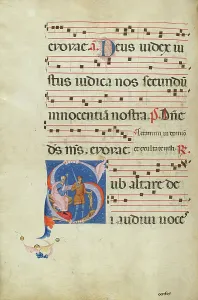 evovae. a. Deus iudex iu
stus iudica nos secundū
innocentiā nostrā. P̄s. Dn̄e
dn̄s nr̄. evovae.
R
Sub altare de
i audiui uoce